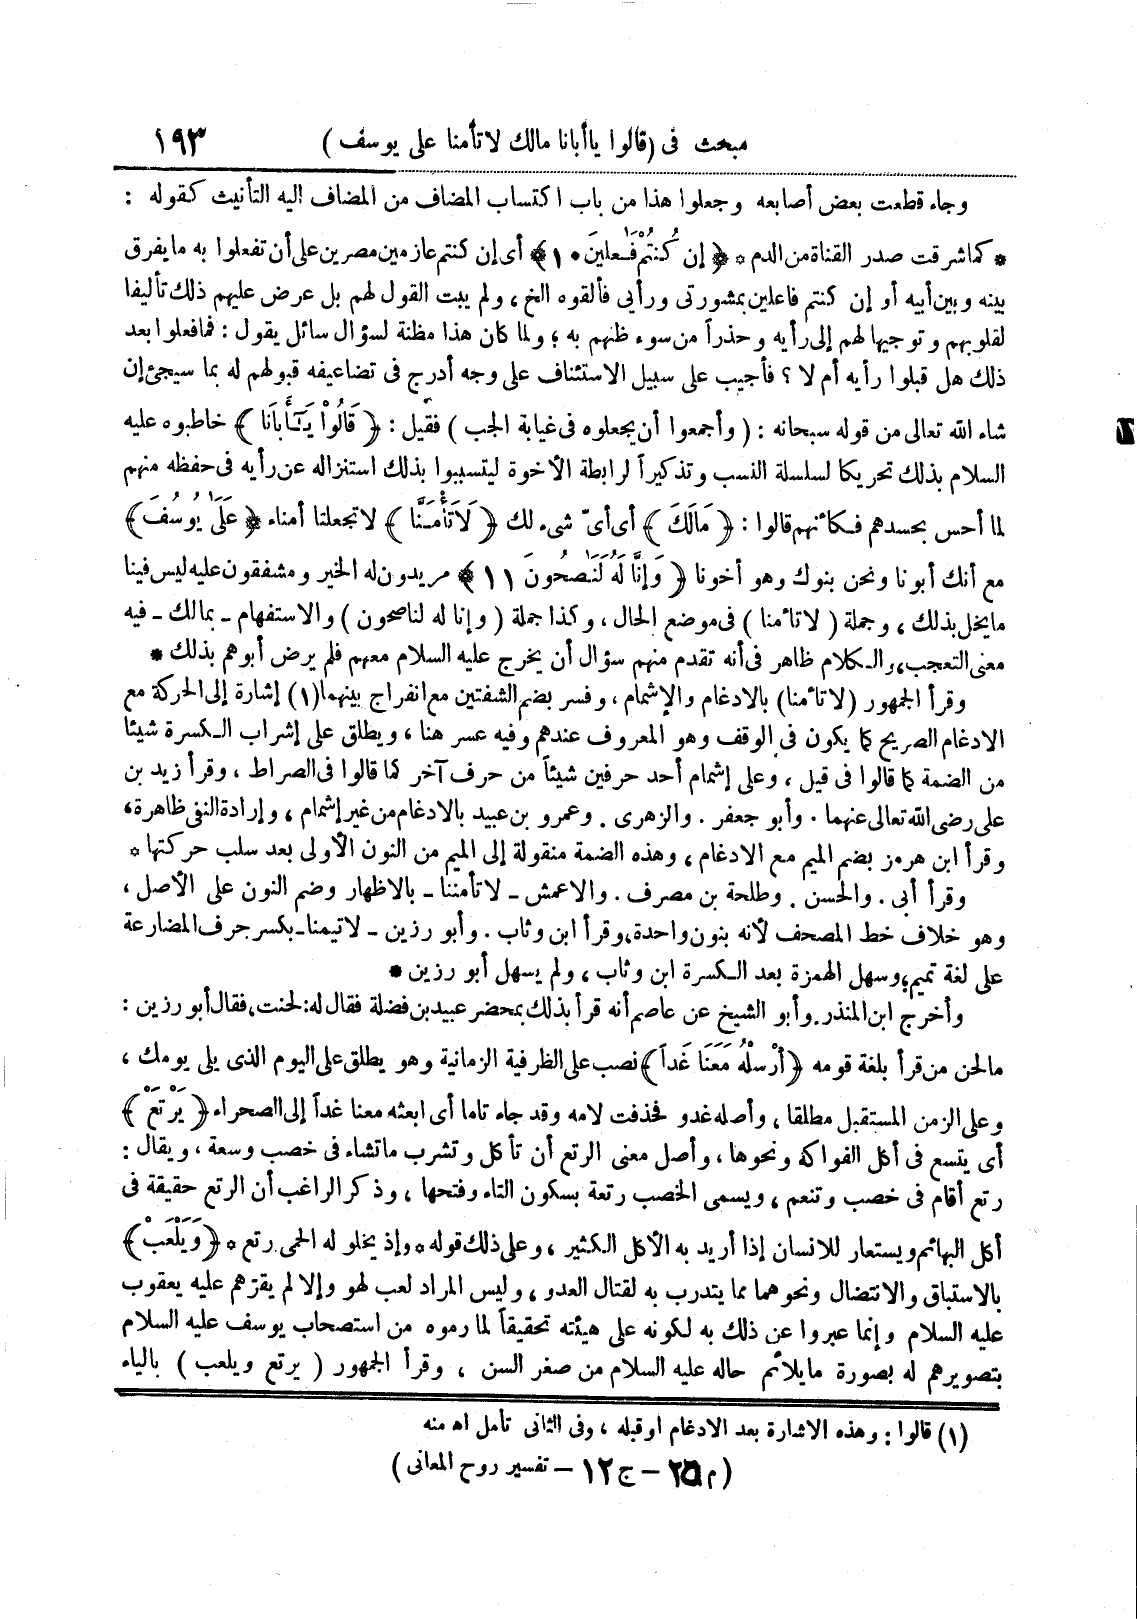 مبحث فى (قالوا ياأبانا مالك لاتأمنا على يوسف) ١٩٣
وجاء قطعت بعض أصابعه وجعلوا هذا من باب اكتساب المضاف من المضاف اليه التأنيث كقوله :
* كماشرقت صدر القناة من الدم * ﴿ إِن كُنتُمْ فَٰعِلِينَ ١٠ ﴾ أى إن كنتم عازمين مصرين على أن تفعلوا به مايفرق
بينه وبين أبيه أو إن كنتم فاعلين بمشورتى ورأيى فألقوه الخ ، ولم يبت القول لهم بل عرض عليهم ذلك تأليفا
لقلوبهم وتوجيها لهم إلى رأيه وحذراً من سوء ظنهم به ؛ ولما كان هذا مظنة لسؤال سائل يقول : فمافعلوا بعد
ذلك هل قبلوا رأيه أم لا ؟ فأجيب على سبيل الاستئناف على وجه أدرج فى تضاعيفه قبولهم له بما سيجئ إن
شاء الله تعالى من قوله سبحانه : ( وأجمعوا أن يجعلوه فى غيابة الجب ) فقيل : ﴿ قَالُواْ يَـٰٓأَبَانَا ﴾ خاطبوه عليه
السلام بذلك تحريكا لسلسلة النسب وتذكيراً لرابطة الأخوة ليتسببوا بذلك استنزاله عن رأيه فى حفظه منهم
لما أحس بحسدهم فكأنهم قالوا : ﴿ مَالَكَ ﴾ أى أىّ شىء لك ﴿ لَا تَأْمَنَّا ﴾ لاتجعلنا أمناء ﴿ عَلَىٰ يُوسُفَ ﴾
مع أنك أبونا ونحن بنوك وهو أخونا ﴿ وَإِنَّا لَهُ لَنَٰصِحُونَ ١١ ﴾ مريدون له الخير ومشفقون عليه ليس فينا
مايخل بذلك ، وجملة ( لاتأمنا ) فى موضع الحال ، وكذا جملة ( وإنا له لناصحون ) والاستفهام ـ بمالك ـ فيه
معنى التعجب، والكلام ظاهر فى أنه تقدم منهم سؤال أن يخرج عليه السلام معهم فلم يرض أبوهم بذلك *
وقرأ الجمهور (لاتأمنا) بالادغام والإشمام ، وفسر بضم الشفتين مع انفراج بينهما(١) إشارة إلى الحركة مع
الادغام الصريح كما يكون فى الوقف وهو المعروف عندهم وفيه عسر هنا ، ويطلق على إشراب الكسرة شيئا
من الضمة كما قالوا فى قيل ، وعلى إشمام أحد حرفين شيئاً من حرف آخر كما قالوا فى الصراط ، وقرأ زيد بن
على رضى الله تعالى عنهما . وأبو جعفر . والزهرى . وعمرو بن عبيد بالادغام من غير إشمام ، وإرادة النفى ظاهرة،
وقرأ ابن هرمز بضم الميم مع الادغام ، وهذه الضمة منقولة إلى الميم من النون الأولى بعد سلب حركتها *
وقرأ أبى . والحسن . وطلحة بن مصرف . والاعمش ـ لاتأمننا ـ بالاظهار وضم النون على الأصل ،
وهو خلاف خط المصحف لأنه بنون واحدة، وقرأ ابن وثاب . وأبو رزين ـ لاتيمنا ـ بكسر حرف المضارعة
على لغة تميم؛ وسهل الهمزة بعد الكسرة ابن وثاب ، ولم يسهل أبو رزين *
وأخرج ابن المنذر . وأبو الشيخ عن عاصم أنه قرأ بذلك بمحضر عبيد بن فضلة فقال له: لحنت، فقال أبو رزين :
مالحن من قرأ بلغة قومه ﴿ أَرْسِلْهُ مَعَنَا غَداً ﴾ نصب على الظرفية الزمانية وهو يطلق على اليوم الذى يلى يومك ،
وعلى الزمن المستقبل مطلقا ، وأصله غدو فحذفت لامه وقد جاء تاما أى ابعثه معنا غداً إلى الصحراء ﴿ يَرْتَعْ ﴾
أى يتسع فى أكل الفواكه ونحوها ، وأصل معنى الرتع أن تأكل وتشرب ماتشاء فى خصب وسعة ، ويقال :
رتع أقام فى خصب وتنعم ، ويسمى الخصب رتعة بسكون التاء وفتحها ، وذكر الراغب أن الرتع حقيقة فى
أكل البهائم ويستعار للانسان إذا أريد به الأكل الكثير ، وعلى ذلك قوله * وإذ يخلو له الحمى رتع * ﴿ وَيَلْعَبْ ﴾
بالاستباق والانتضال ونحوهما مما يتدرب به لقتال العدو ، وليس المراد لعب لهو وإلا لم يقرّهم عليه يعقوب
عليه السلام وإنما عبروا عن ذلك به لكونه على هيئته تحقيقاً لما رموه من استصحاب يوسف عليه السلام
بتصويرهم له بصورة مايلائم حاله عليه السلام من صغر السن ، وقرأ الجمهور ( يرتع ويلعب ) بالياء
(١) قالوا : وهذه الاشارة بعد الادغام او قبله ، وفى الثانى تأمل اه منه
(م ٢٥ – ج ١٢ – تفسير روح المعانى)